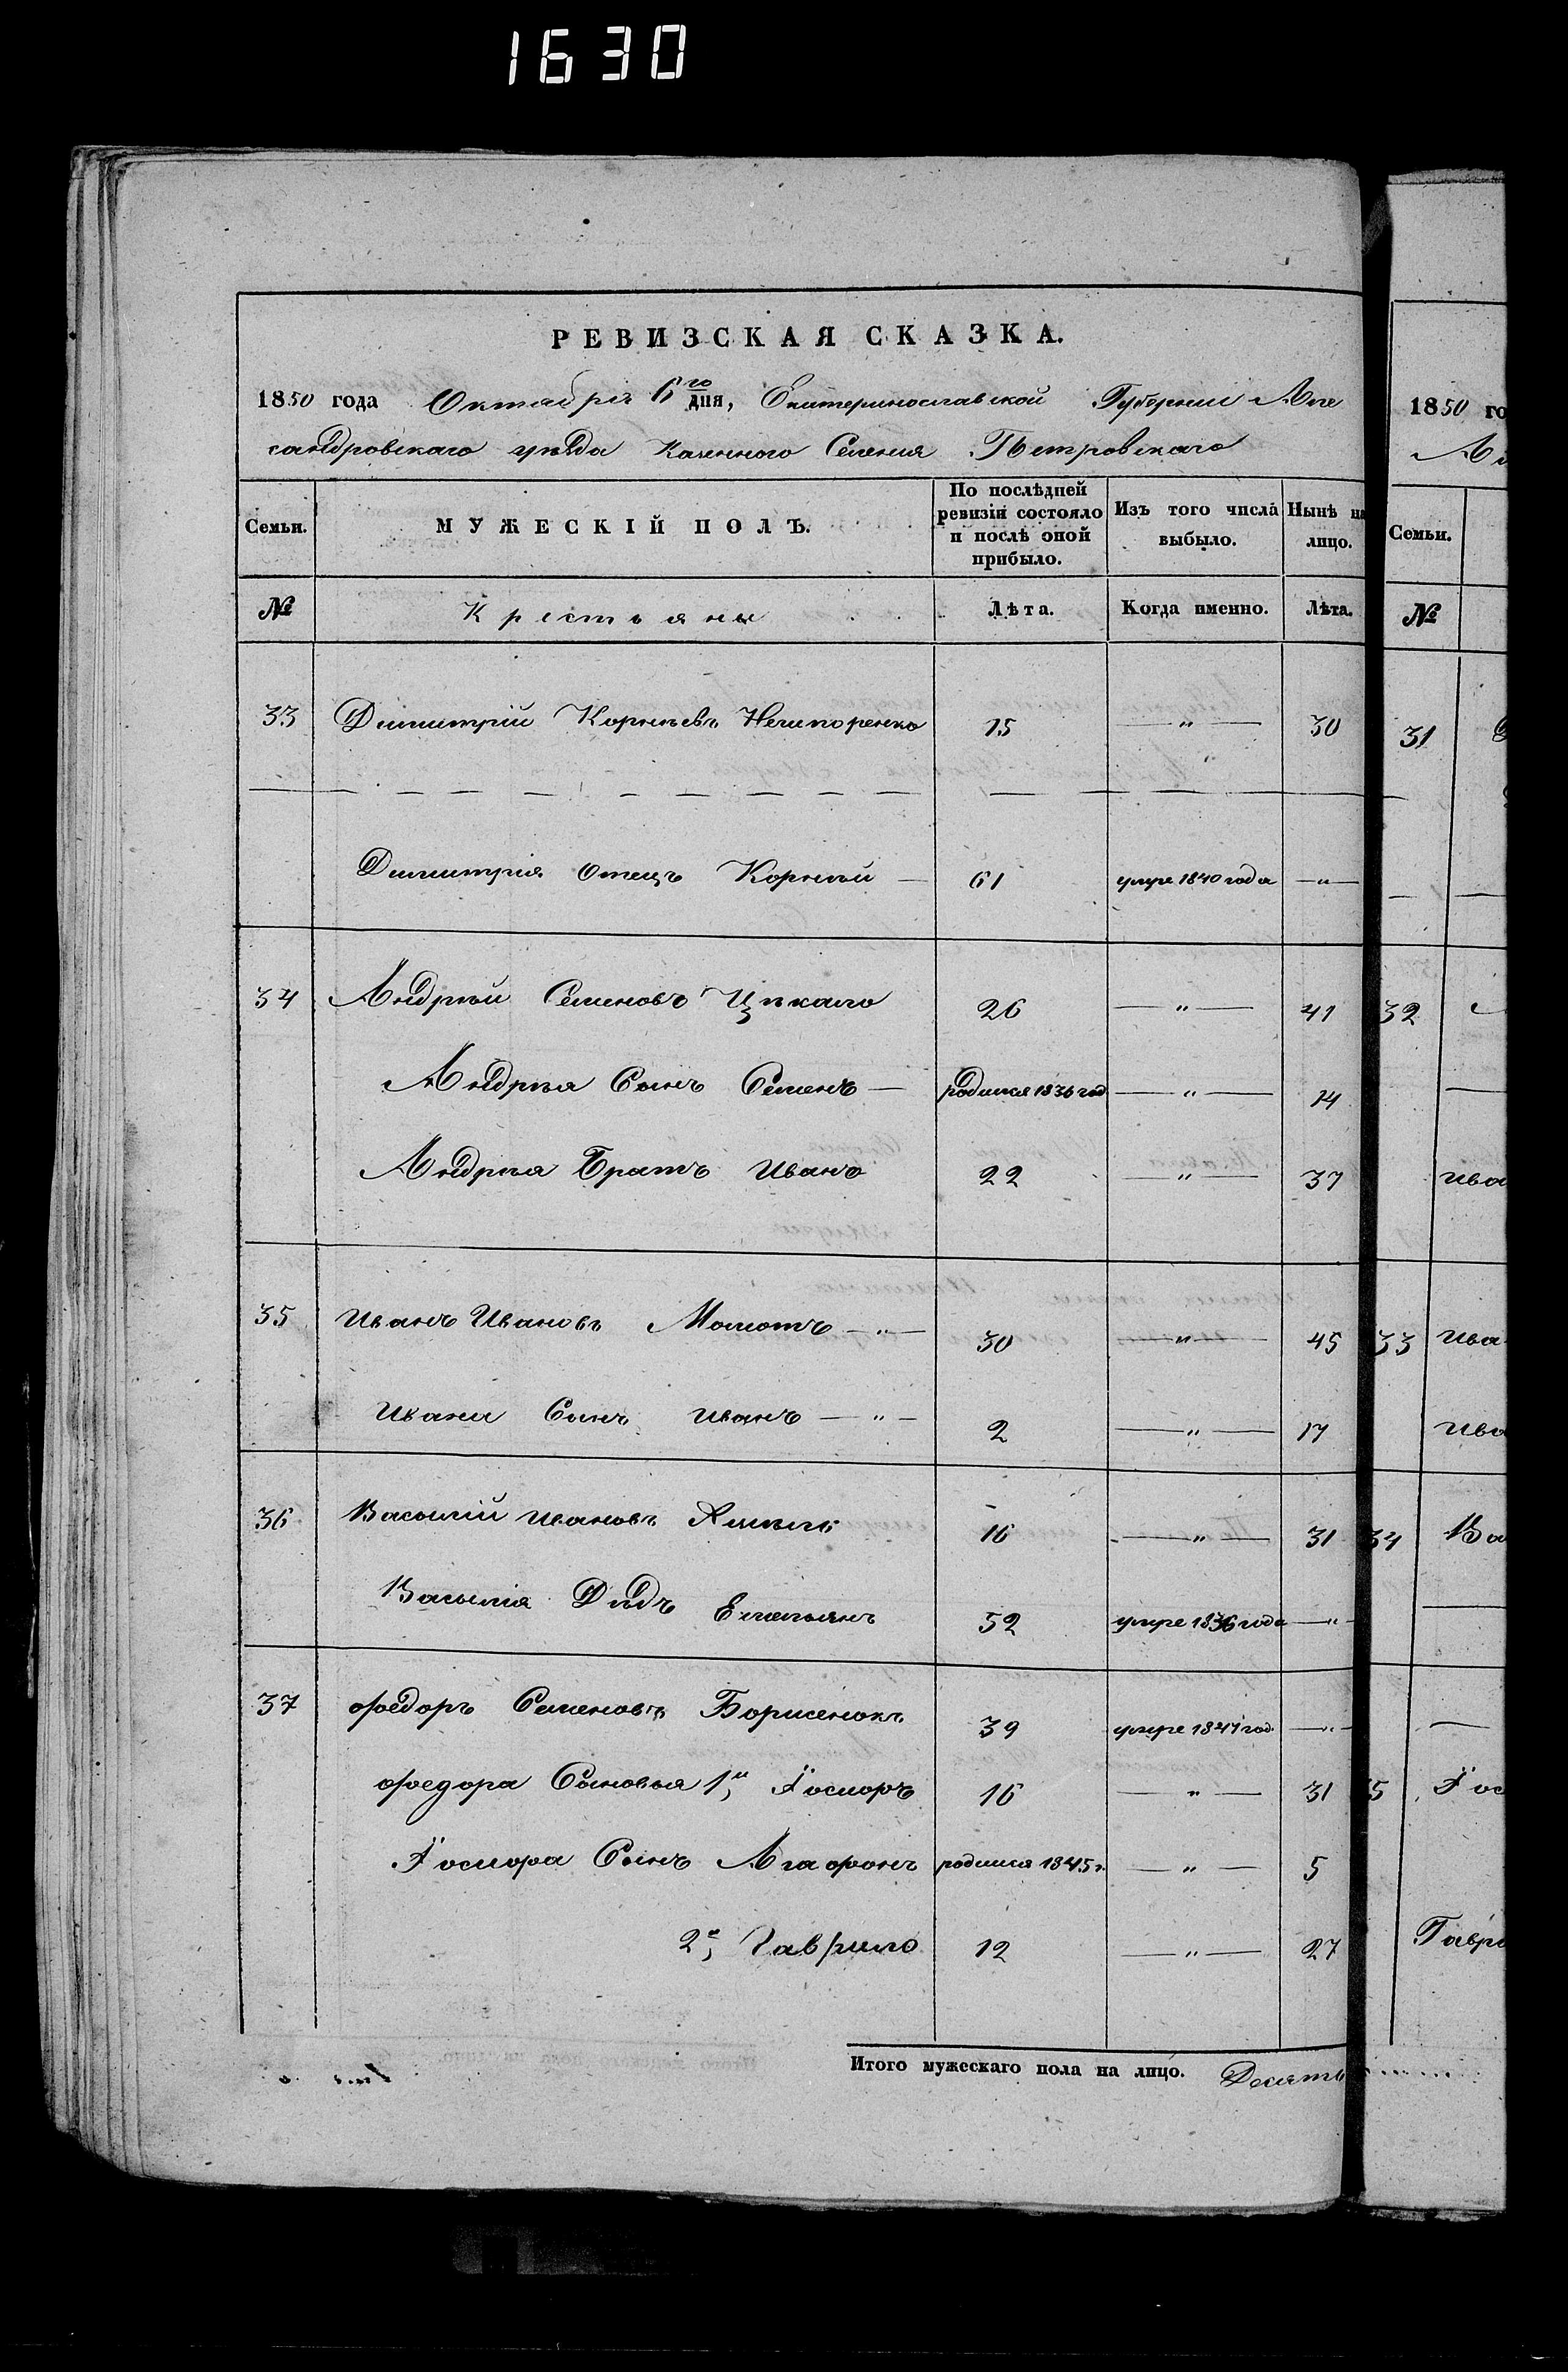 1630
РЕВИЗСКАЯ СКАЗКА.
1850 года Октября 6го дня, Екатеринославской Губернии Алек
сандровскаго уезда Казенного Селения Петровскаго
Семьи. МУЖЕСКІЙ ПОЛЪ. По послѣдней ревизіи состояло и послѣ оной прибыло. Изъ того числа выбыло. Нынѣ на лицо.
№ Крестьяне Лѣта. Когда именно. Лѣта.
33 Димитрій Корнѣевъ Нечипоренко 15 — " — 30
Димитрія Отецъ Корнѣй — 61 умре 1840 года — " —
34 Андрѣй Семеновъ Цѣкало 26 — " — 41
Андрѣя Сынъ Семенъ — родился 1836 год — " — 14
Андрѣя Братъ Иванъ 22 — " — 37
35 Иванъ Ивановъ Момотъ — " — 30 — " — 45
Ивана Сынъ Иванъ — " — 2 — " — 17
36 Василій Ивановъ 16 — " — 31
Василія Дѣдъ Емельянъ 52 умре 1836 года — " —
37 Федоръ Семеновъ Борисенокъ 39 умре 1847 год. — " —
Федора Сыновья 1й 16 — " — 31
Сынъ Агафонъ родился 1845 г. — " — 5
2й Гаврило 12 — " — 27
Итого мужескаго пола на лицо. Десять
1850 го
Семьи.
№
31
32
Ива
33 Ива
Ива
34 Ва
Гаври